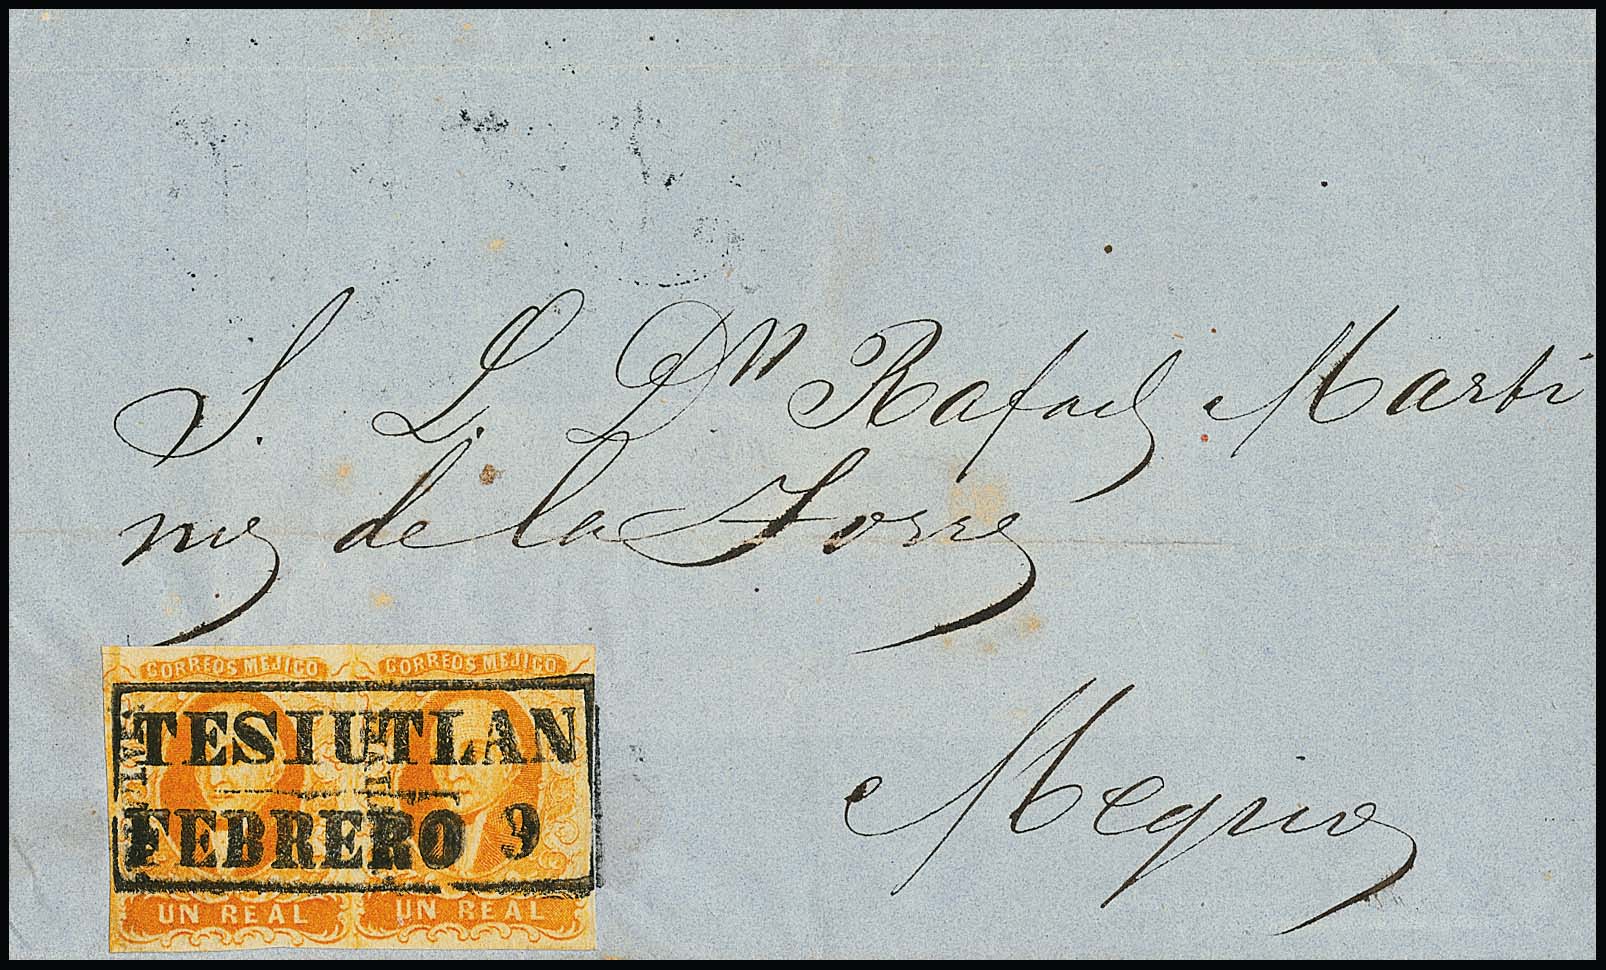 S. D. Dn Rafael Marti
nez de la Torre
Megico
CORREOS MEJICO CORREOS MEJICO
TESIUTLAN
FEBRERO 9
UN REAL UN REAL